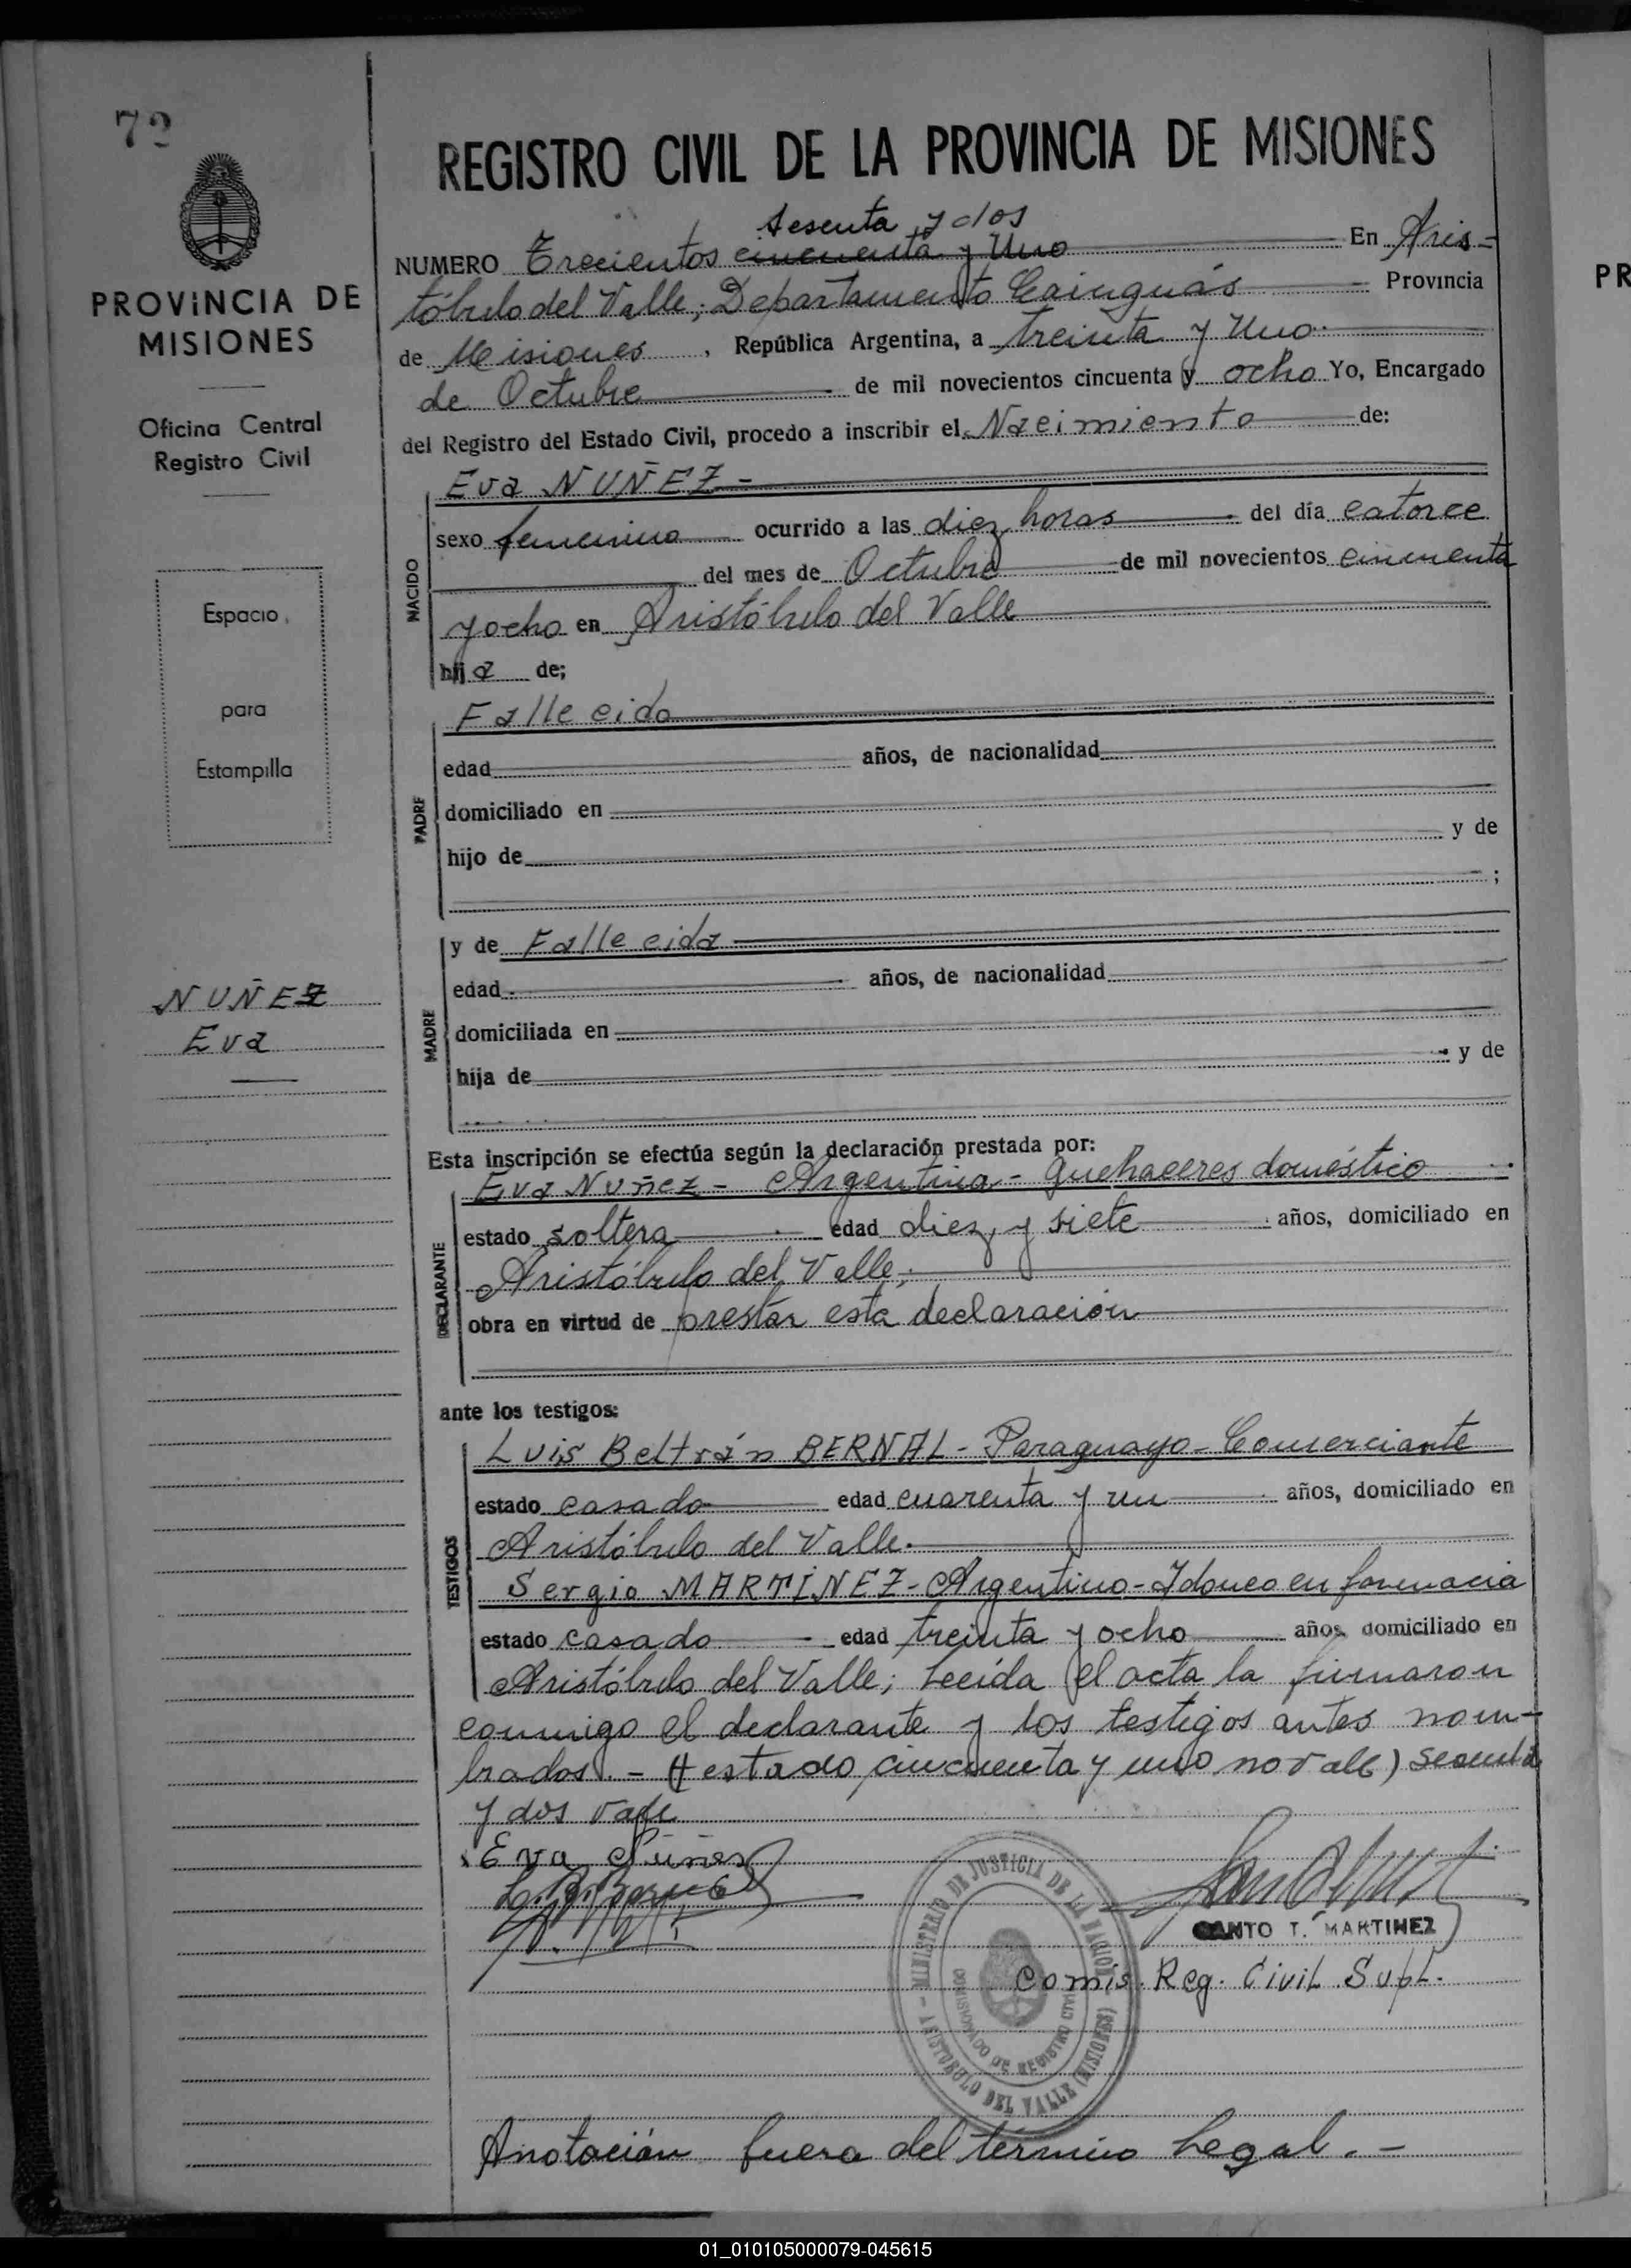 72
REGISTRO CIVIL DE LA PROVINCIA DE MISIONES
PROVINCIA DE
MISIONES
Oficina Central
Registro Civil
Espacio
para
Estampilla
NUÑEZ
Eva
sesenta y dos
NUMERO Trecientos cincuenta y Uno En Aris=
tóbulo del Valle; Departamento Cainguás Provincia
de Misiones, República Argentina, a treinta y Uno
de Octubre de mil novecientos cincuenta y ocho Yo, Encargado
del Registro del Estado Civil, procedo a inscribir el Nacimiento de:
NACIDO
Eva NUÑEZ -
sexo femenino ocurrido a las diez horas del día catorce
del mes de Octubre de mil novecientos cincuenta
y ocho en Aristóbulo del Valle
hija de;
PADRE
Fallecido
edad años, de nacionalidad
domiciliado en
hijo de y de
;
MADRE
y de Fallecida
edad años, de nacionalidad
domiciliada en
hija de y de
Esta inscripción se efectúa según la declaración prestada por:
DECLARANTE
Eva Nuñez - Argentina - Quehaceres doméstico
estado soltera edad diez y siete años, domiciliado en
Aristóbulo del Valle;
obra en virtud de prestar esta declaración
ante los testigos:
TESTIGOS
Luis Beltrán BERNAL - Paraguayo - Comerciante
estado casado edad cuarenta y un años, domiciliado en
Aristóbulo del Valle.
Sergio MARTÍNEZ - Argentino - Idoneo en farmacia
estado casado edad treinta y ocho años domiciliado en
Aristóbulo del Valle; Leeida el acta la firmaron
conmigo el declarante y los testigos antes nom-
brados. - (testado cincuenta y uno no vale) sesenta
y dos vale
Eva Núñes
MINISTERIO DE JUSTICIA DE LA NACION
COMISIONADO DE REGISTRO CIVIL
ARISTOBULO DEL VALLE (MISIONES)
CANTO T. MARTINEZ
Comis. Reg. Civil Supl.
Anotación fuera del término Legal. -
PR
01_010105000079-045615